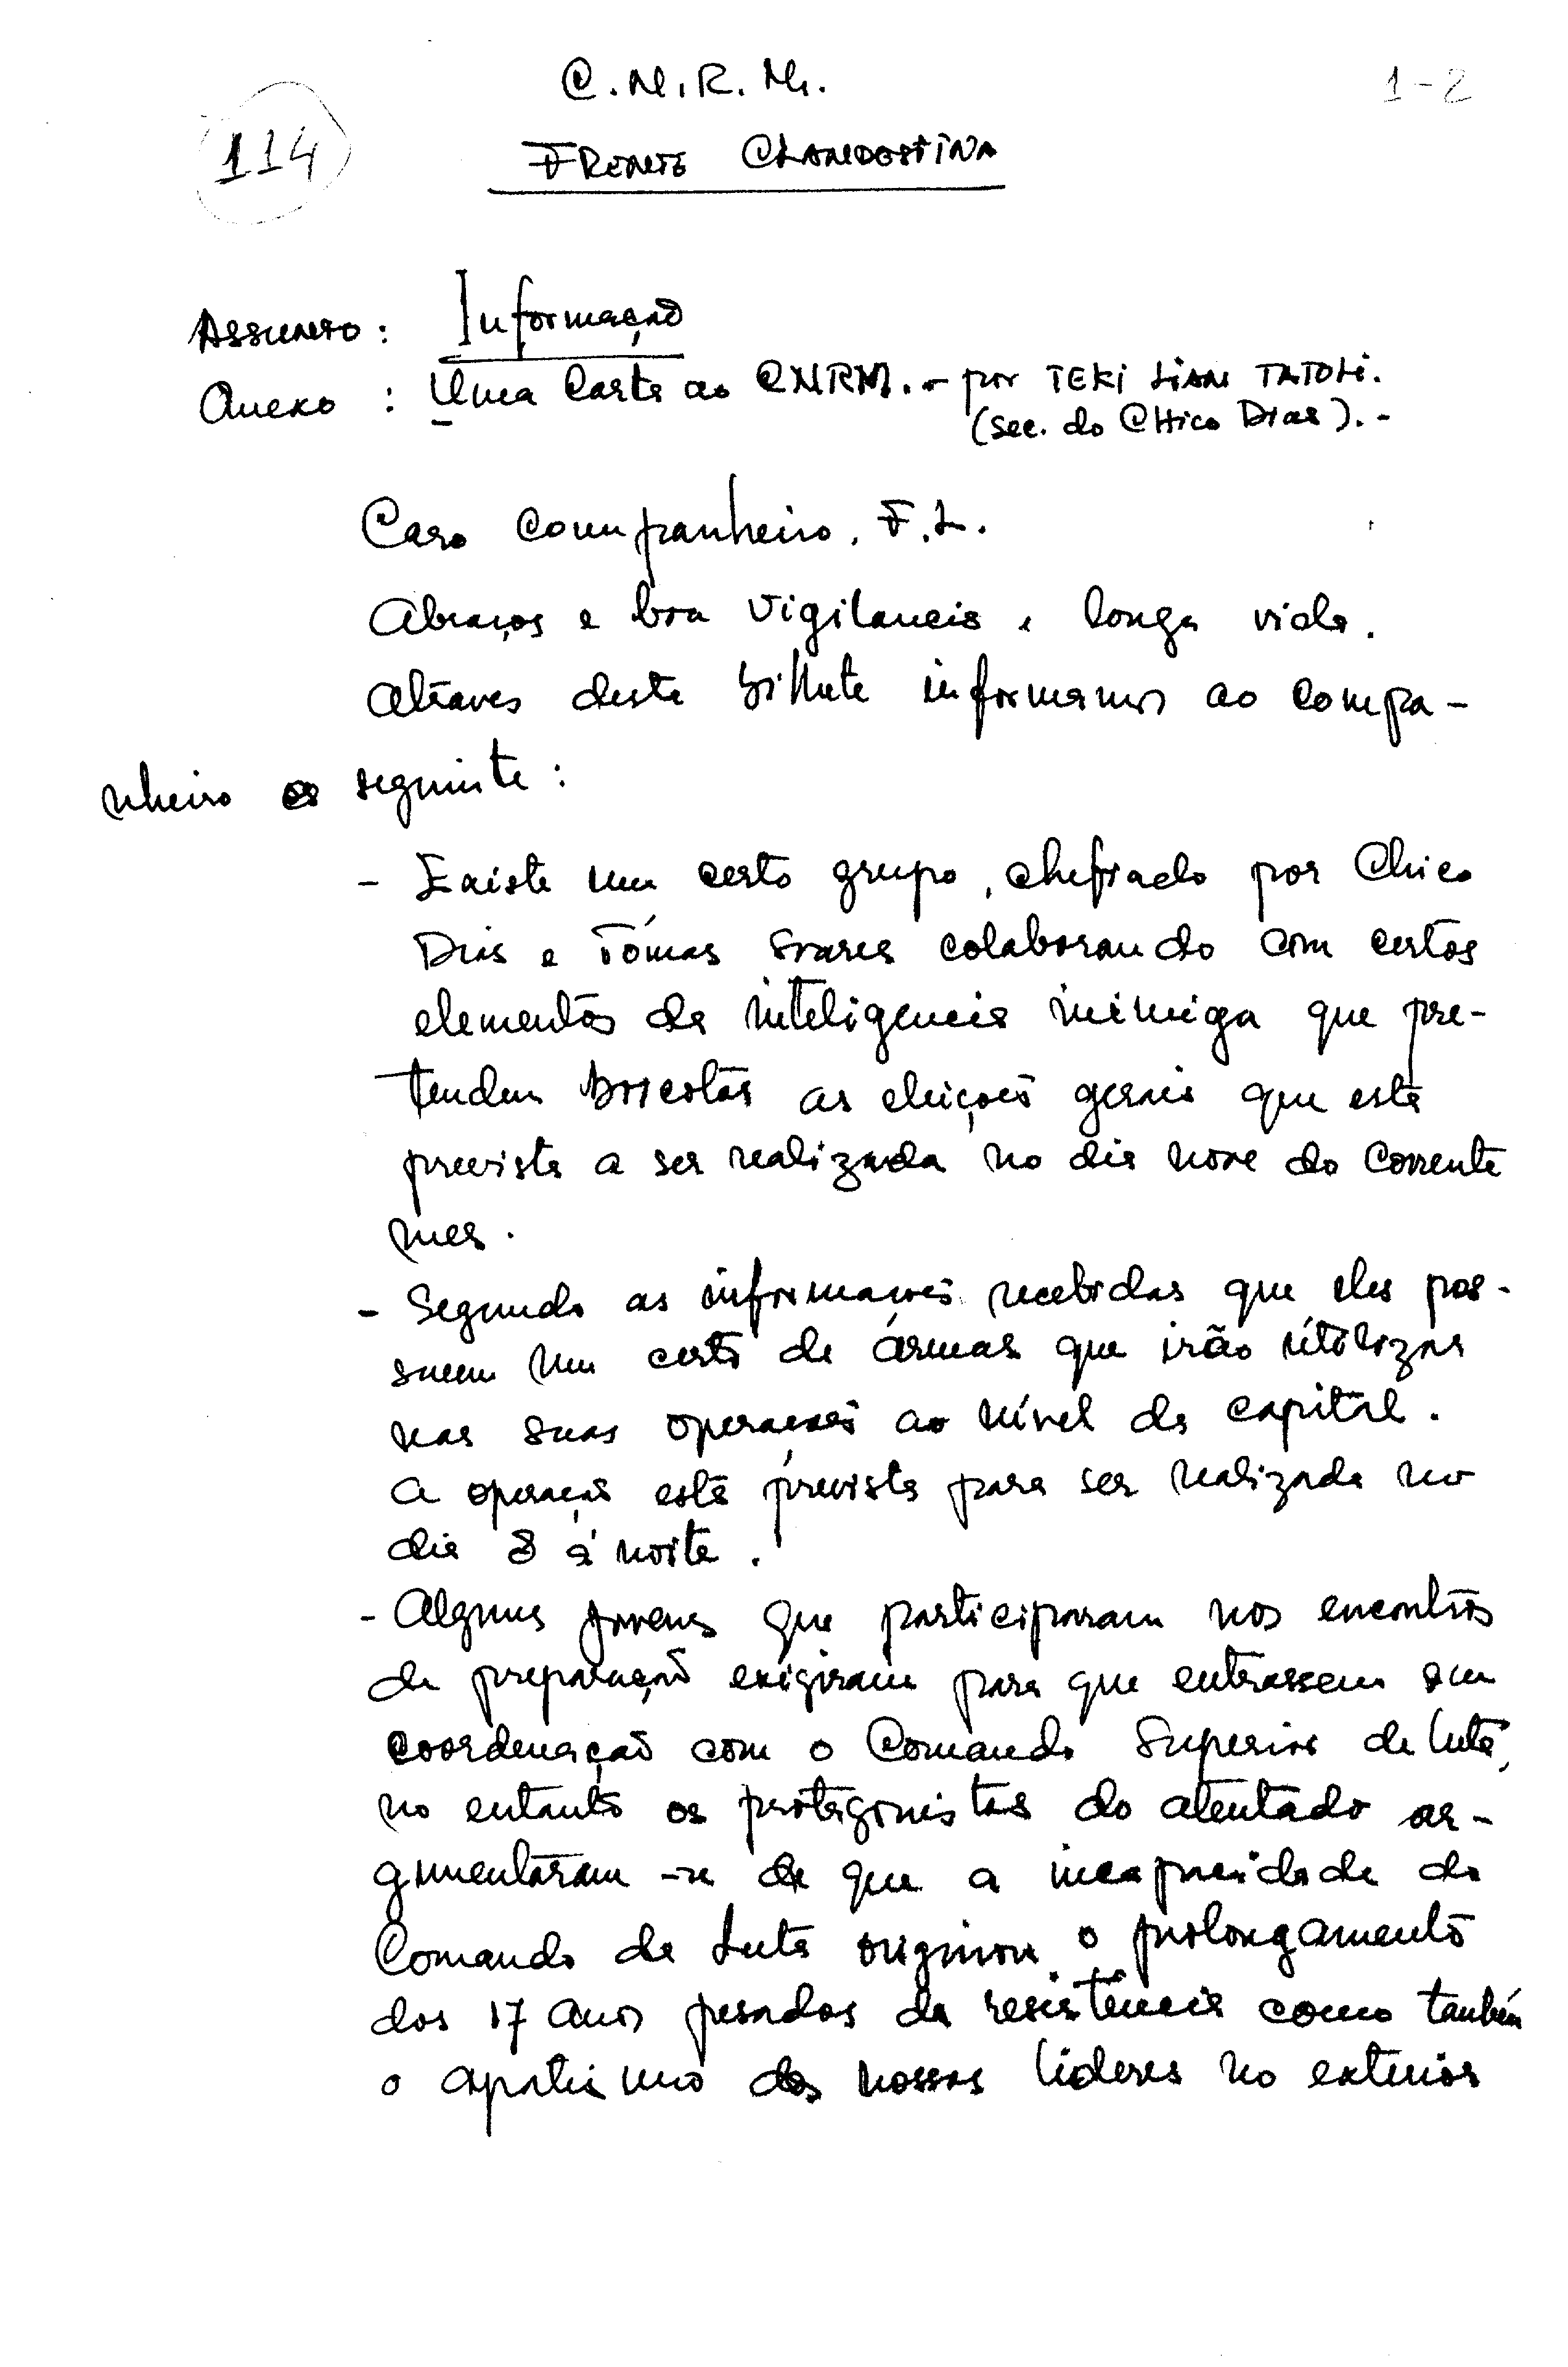 C.N.R.M.
1-2
114
FRENTE CLANDESTINA
ASSUNTO: Informação
Anexo: Uma Carta ao CNRM. - por TEKI LIAN TATOLI.
(sec. do Chico Dias). -
Caro Companheiro, F.L.
Abraços e boa vigilancia e longa vida.
Atraves deste bilhete informamos ao compa-
nheiro o seguinte:
- Existe um certo grupo, chefiado por Chico
Dias e Tómas Soares colaborando com certos
elementos da inteligencia inimiga que pre-
tendem boicotar as eleições gerais que está
prevista a ser realizada no dia nove do corrente
mes.
- Segundo as informações recebidas que eles pos-
suem um certo de ármas que irão utilizar
nas suas operações ao nível da capital.
A operação está prevista para ser realizada no
dia 8 á noite.
- Alguns jovens que participaram nos encontros
de preparação exigiram para que entrassem em
coordenação com o Comando Superior de luta,
no entanto os protagonistas do atentado ar-
gumentaram-se de que a incapacidade do
Comando da Luta originou o prolongamento
dos 17 anos pesados da resistência como também
o apatismo dos nossos líderes no exterior